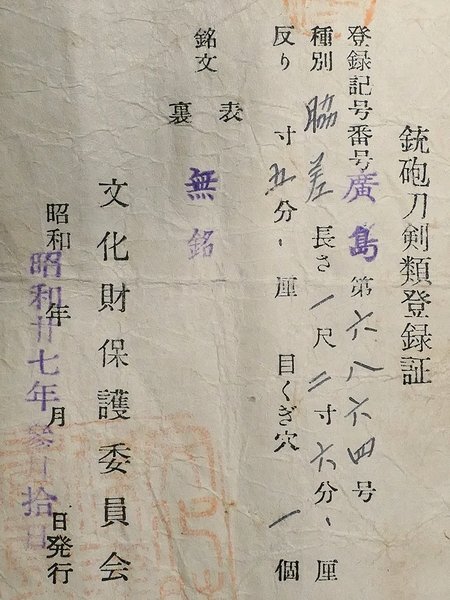 銃砲刀剣類登録証
登録記号番号廣島第六八六四号
種別 脇差 長さ一尺二寸六分、厘
反り 寸五分、厘 目くぎ穴 一個
銘文 表
裏 無銘
文化財保護委員会
昭和 年 月 日発行
昭和廿七年参月拾日